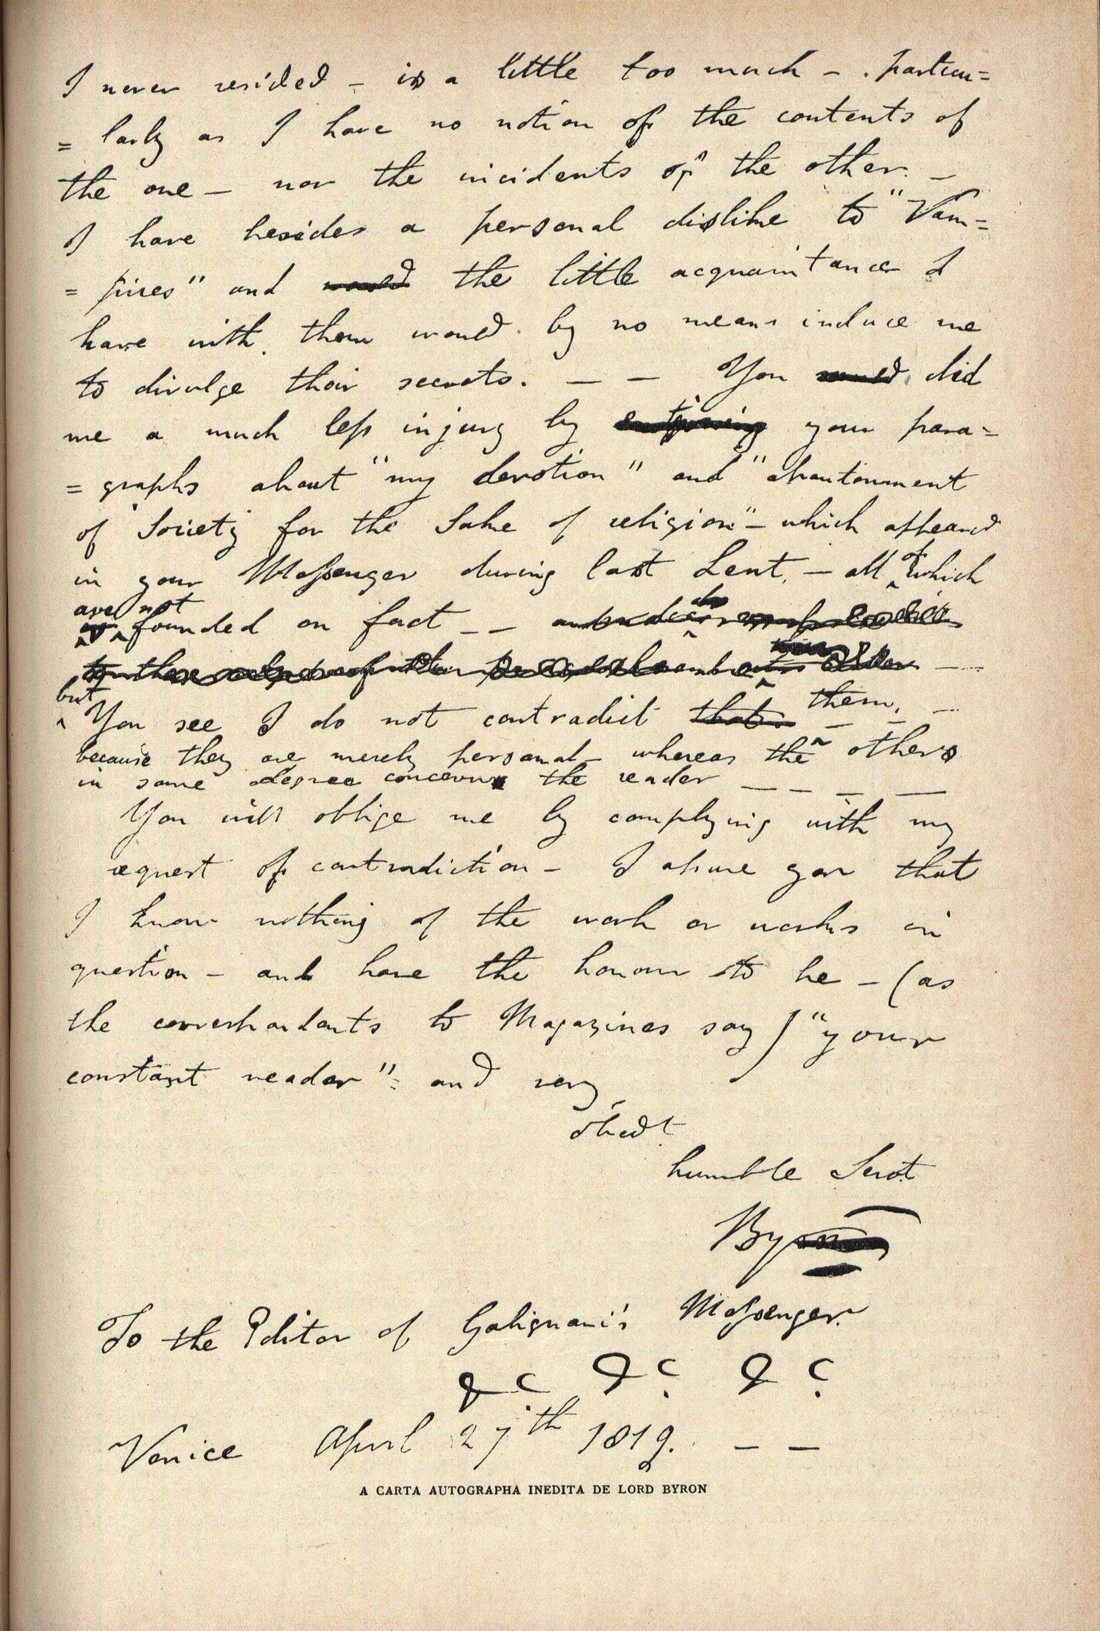 I never resided – is a little too much – . particu=
= larly as I have no notion of the contents of
the one – nor the incidents of the other. –
I have besides a personal dislike to "Vam=
= pires" and the little acquaintance I
have with them would by no means induce me
to divulge their secrets. – – You did
me a much less injury by your para=
= graphs about "my devotion" and "abandonment
of Society for the Sake of religion" – which appeared
in your Messenger during last Lent, – all of which
are not
founded on fact – –
but
You see I do not contradict them, –
because they are merely personal – whereas the others
in some degree concern the reader – – – –
You will oblige me by complying with my
request of contradiction – I assure you that
I know nothing of the work or works in
question – and have the honour to be – (as
the correspondents to Magazines say) "your
constant reader" and very
obedt
humble Servt
Byron
To the Editor of Galignani's Messenger.
&c &c &c
Venice April 27th 1819. – –
A CARTA AUTOGRAPHA INEDITA DE LORD BYRON